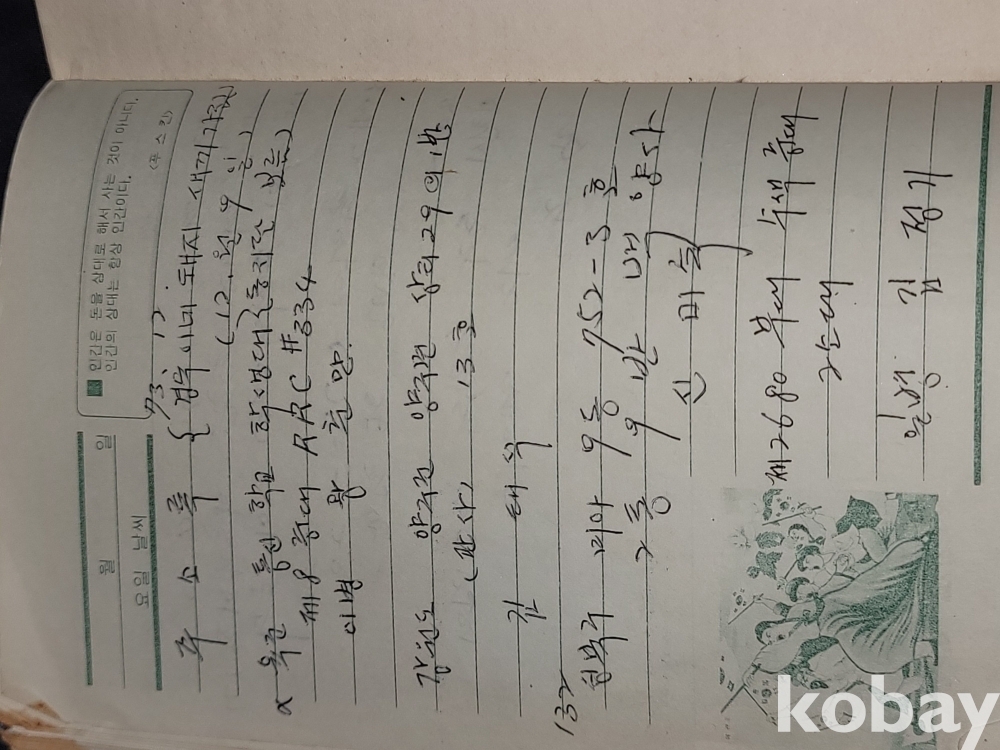 월 일
요일 날씨
인간은 돈을 상대로 해서 사는 것이 아니다.
인간의 상대는 항상 인간이다.
(푸 스 킨)
73. 12.
주 소 록 { 검둥이네 돼지 새끼가
(12. 월 9 일)
육군 통신 학교 학생대
제 8 중대 ARC #334
이병 황 만
강원도 양구군 양구면 상리 29의 1반
(관사) 13호
김 태 식
132
성북구 미아 9동 752-3 호
2통 9반
신 미 숙
제2680 부대 수색 중대
2소대
일병 김 정기
kobay